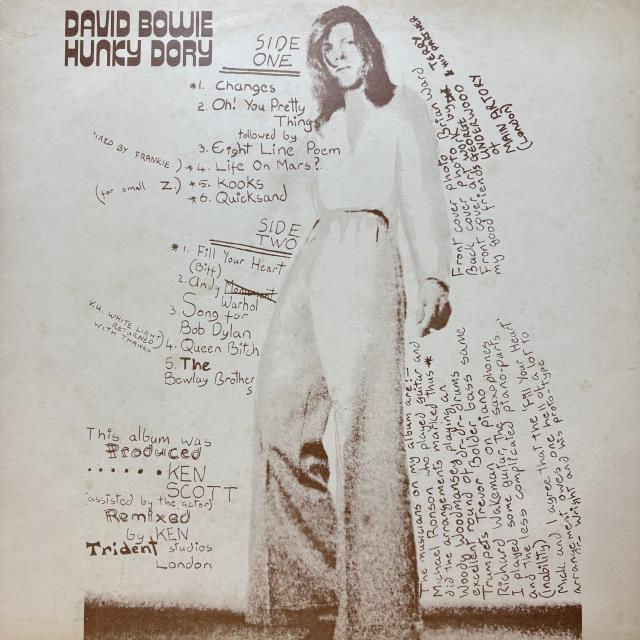 DAVID BOWIE
HUNKY DORY
SIDE
ONE
*1. Changes
2. Oh! You Pretty
Things
followed by
3. Eight Line Poem
*4. Life On Mars?
*5. Kooks
*6. Quicksand
IRED BY FRANKIE)
(for small Z)
SIDE
TWO
*1. Fill Your Heart
(Biff)
2. Andy
Warhol
3. Song for
Bob Dylan
4. Queen Bitch
5. The
Bewlay Brothers
V.U. WHITE LIGHT
RETURNED
WITH THANKS
This album was
Produced
......KEN
SCOTT
(assisted by the actor)
Remixed
by KEN
Trident studios
London
Front cover photo Brian Ward
Back cover photo
Front cover art GEORGE UNDERWOOD
my good friends at MAIN ARTORY
(LONDON)
TERRY
& HIS PARTNER
The musicians on my album are:-
Michael Ronson who played guitar and
did the arrangements marked thus *
Woody Woodmansey playing drums
excellent round sound
Trumpets Trevor Bolder bass same
Richard Wakeman on piano
I played some guitar, the saxophones
and the less complicated piano-parts
(inability)
Mick and I agree that the 'Fill Your Heart'
arrangement owes one hell of a lot to
Arthur G. Wright and his prototype